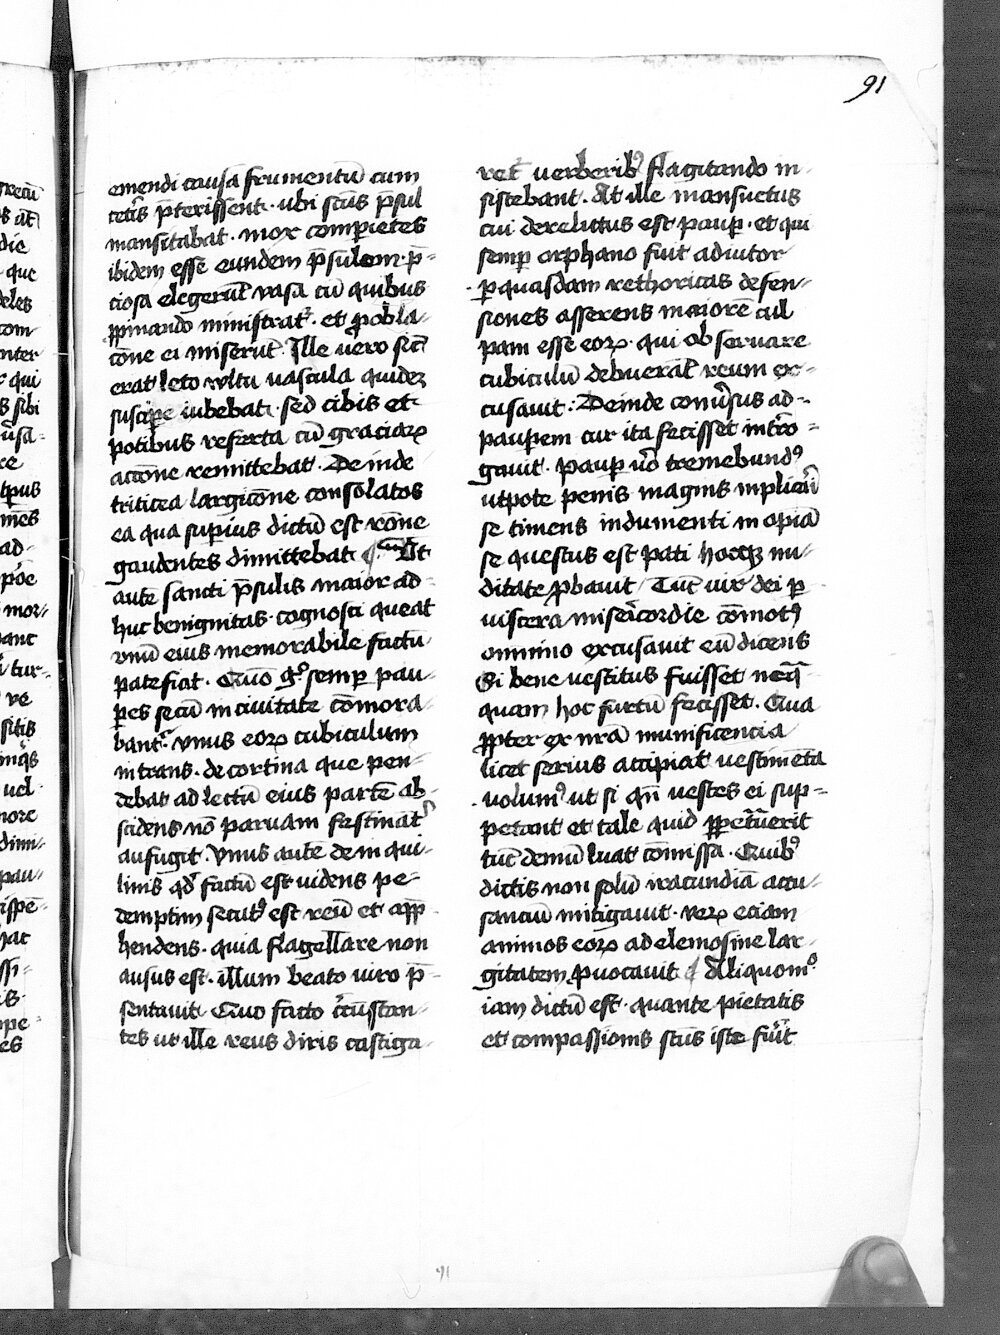 91
emendi causa frumentū cum
cet͛is p̄terissent · ubi sc̄us p̄sul
mansitabat · mox comperietes
ibidem esse eundem p̄sulem · p̄-
ciosa elegerūt vasa cū quibus
ꝓpinando ministrat᷑ · et ꝓ obla-
cōne ei miserūt Ille v̓o sic̄
erat leto vultu vascula quidez
suscipe iubebat · sed cibis et
potibus referta cū graciaꝝ
accōne remittebat · Deinde
triticea largicōne consolatos
ea qua superius dictū est rōne
gaudentes dimittebat ¶ Ut
autē sancti p̄sulis maior ad-
huc benignitas cognosci queat
vnū eius memorabile factū
patefiat · Quō gͦ semꝑ pau-
ꝑes secū in civitate cōmora-
bant᷑ · vnus eoꝝ cubiculum
intrans · de cortina que pen-
debat ad lectū eius partē ab-
scidens nō parvam festinat͛
aufugit · Vnus autē de in qui-
linis qd̓ factū est videns pe-
demptim secutꝰ est reū et app̄-
hendens · quia flagellare non
ausus est · illum beato viro p̄-
sentavit Quo facto circūstan-
tes ut ille reus diris castiga-
ret᷑ verberibꝰ flagitando in-
sistebant · At ille mansuetus
cui derelictus est pauꝑ · et qui
semꝑ orphano fuit adiutor
ꝑ quasdam rethoricas defen-
siones asserens maiorē cul
pam esse eoꝝ · qui observare
cubiculū debuerāt reum ex-
cusavit : Deinde conv̓sus ad-
pauꝑem cur ita fecisset intro-
gavit · pauꝑ v̓o tremebundꝰ
utpote penis magnis inplicari
se timens indumenti inopiā
se questus est pati hocqꝫ nu-
ditate ꝓbavit Tūc vir dei ꝑ
viscera misericordie cōmotꝰ
omnino excusavit eū dicens
Si bene vestitus fuisset neq̄-
quam hoc furtū fecisset · Qua
ꝓpter ex nr̄a munificencia
licet serius accipiat vestimēta
volumꝰ ut si qn̄ vestes ei sup-
petant et tale quid ꝑpetraverit
tūc demū luat cōmissa · Quibꝰ
dictis non solū iracundiā accu-
sanciū mitigavit · veꝝ eciam
animos eoꝝ ad elemosine lar-
gitatem ꝓvocavit ¶ Aliquomͦ
iam dictū est · quante pietatis
et compassionis sc̄us iste fu̓it
91